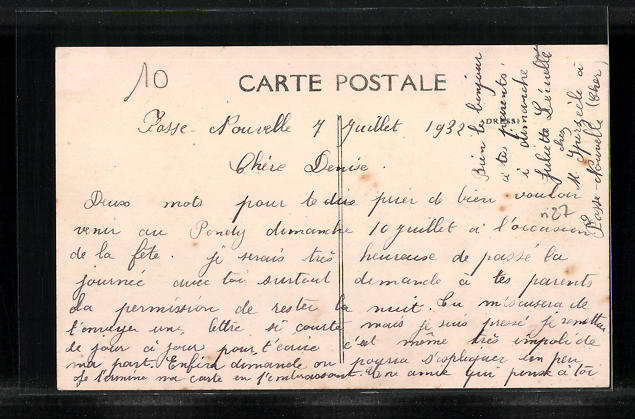 10
CARTE POSTALE
ADRESSE
Fosse-Nouvelle 7 Juillet 1932
Chère Denise.
Deux mots pour te dire prier de bien vouloir
venir au Pondy dimanche 10 juillet à l'occasion
de la fête. je serais très heureuse de passé la
journée avec toi surtout demande à tes parents
la permission de rester la nuit. Tu m'scusera de
t'envoyer une lettre si courte mais je suis pressé je remettai
de jour à jour pour t'écrire c'est même très impoli de
ma part. Enfin dimanche on pourra s'expliquer un peu
Je termine ma carte en t'embrassant. Une amie qui pense à toi
Bien le bonjour
à tes parents.
à dimanche
Juliette
chez
M à
Fosse-Nouvelle (Cher)
n27